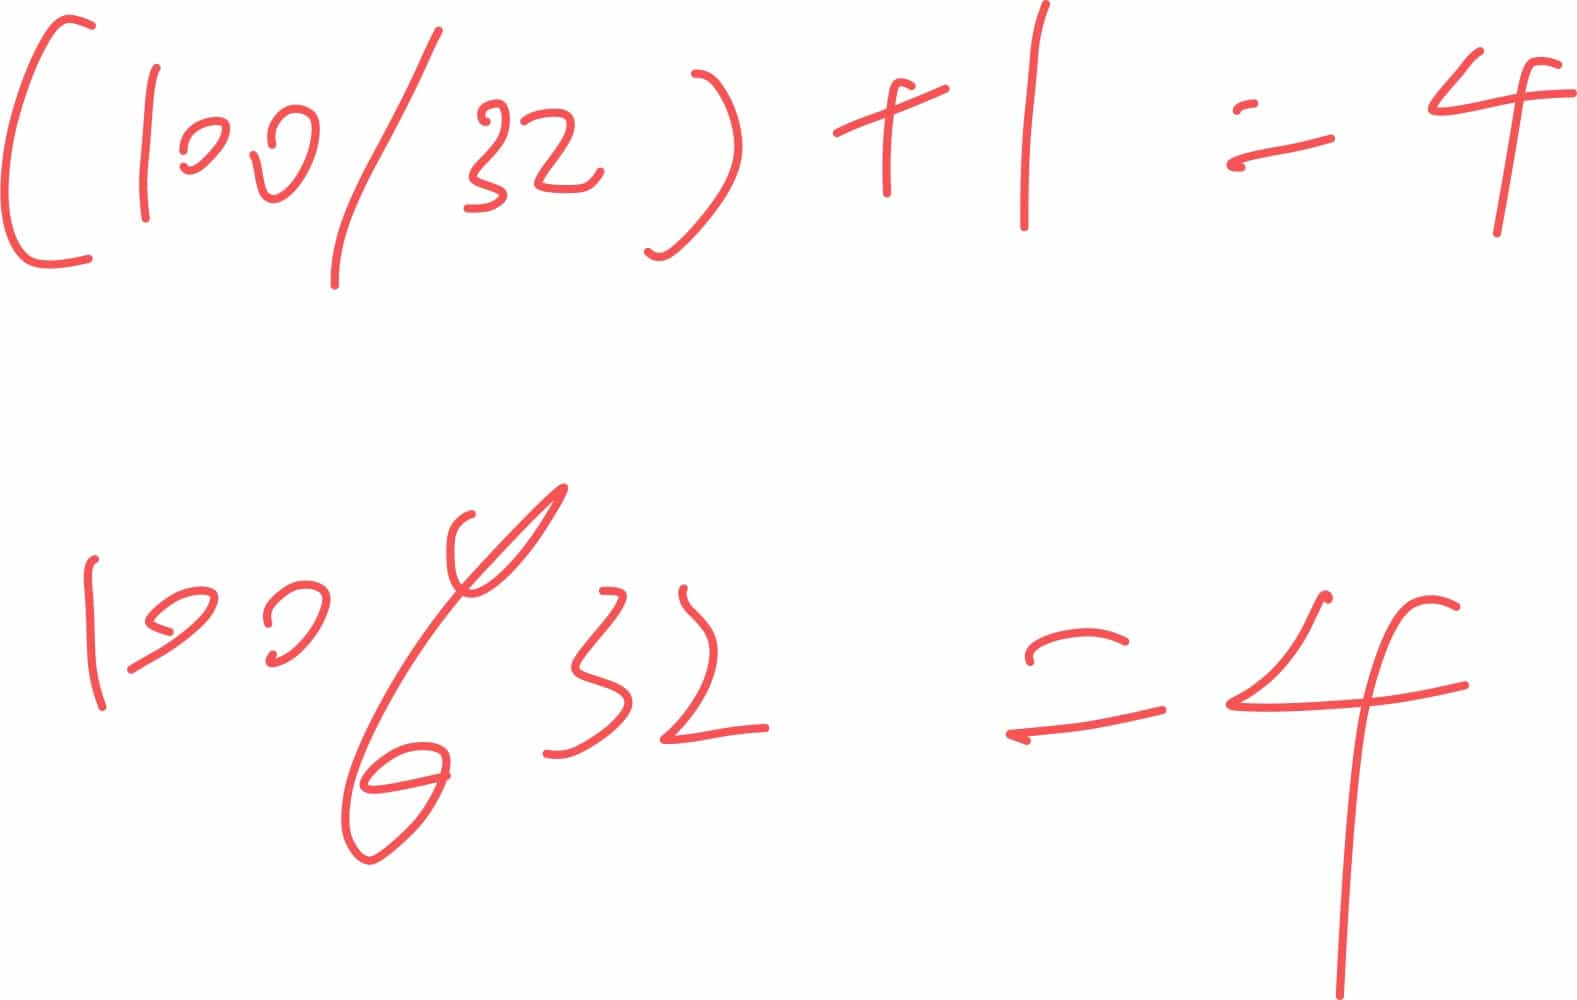 (100/32)+1=4
100%32=4